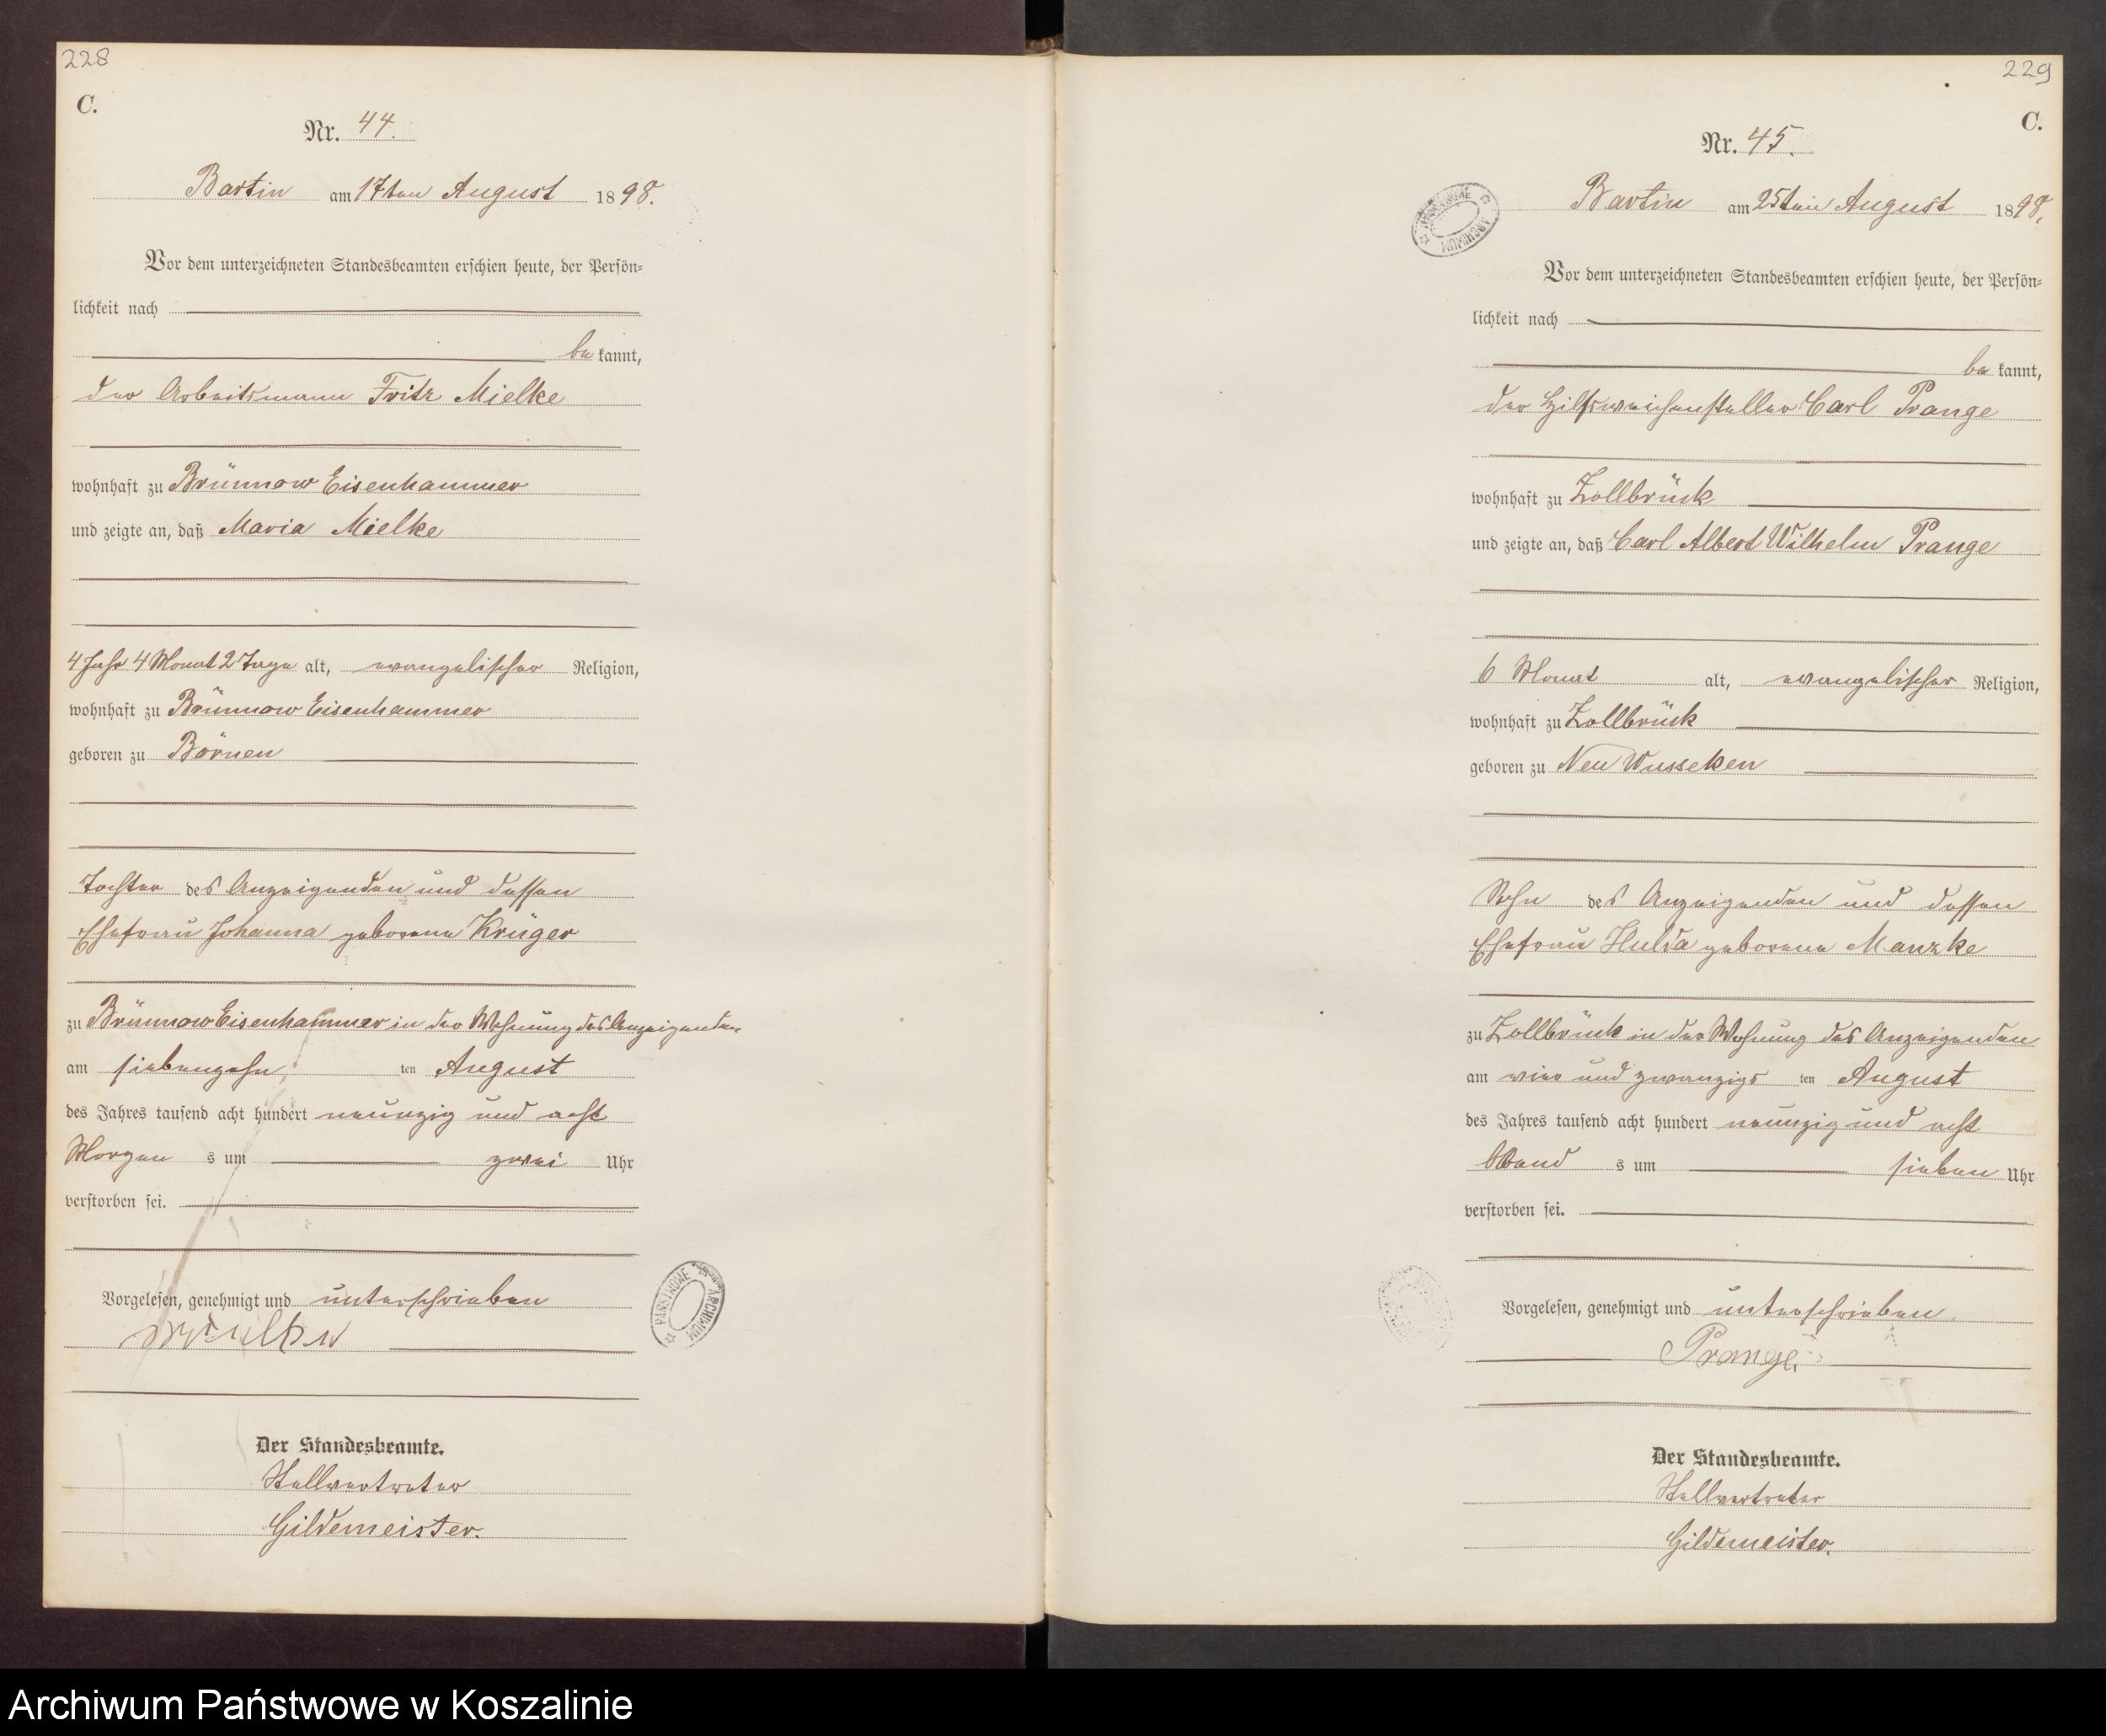 228
C.
Nr. 44.
Bartin am 17ten August 1898.
Vor dem unterzeichneten Standesbeamten erschien heute, der Persön-
lichkeit nach
be kannt,
der Arbeitsmann Fritz Mielke
wohnhaft zu Brünnow Eisenhammer
und zeigte an, daß Maria Mielke
4 Jahr 4 Monat 2 Tage alt, evangelischer Religion,
wohnhaft zu Brünnow Eisenhammer
geboren zu Börnen
Tochter des Anzeigenden und dessen
Ehefrau Johanna geborene Krüger
zu Brünnow Eisenhammer in der Wohnung des Anzeigenden
am siebenzehn ten August
des Jahres tausend acht hundert neunzig und acht
Morgen s um zwei Uhr
verstorben sei.
Vorgelesen, genehmigt und unterschrieben
Mielke
PAŃSTWOWE ARCHIWUM
Der Standesbeamte.
Stellvertreter
Gildemeister.
229
C.
Nr. 45.
ARCHIWUM
Bartin am 25ten August 1898.
Vor dem unterzeichneten Standesbeamten erschien heute, der Persön-
lichkeit nach
be kannt,
der Hilfsweichensteller Carl Prange
wohnhaft zu Zollbrück
und zeigte an, daß Carl Albert Wilhelm Prange
6 Monat alt, evangelischer Religion,
wohnhaft zu Zollbrück
geboren zu Neu Wusseken
Sohn des Anzeigenden und dessen
Ehefrau Hulda geborene Manzke
zu Zollbrück in der Wohnung des Anzeigenden
am vier und zwanzigs ten August
des Jahres tausend acht hundert neunzig und acht
Abend s um sieben Uhr
verstorben sei.
Vorgelesen, genehmigt und unterschrieben.
Prange.
Der Standesbeamte.
Stellvertreter
Gildemeister.
Archiwum Państwowe w Koszalinie